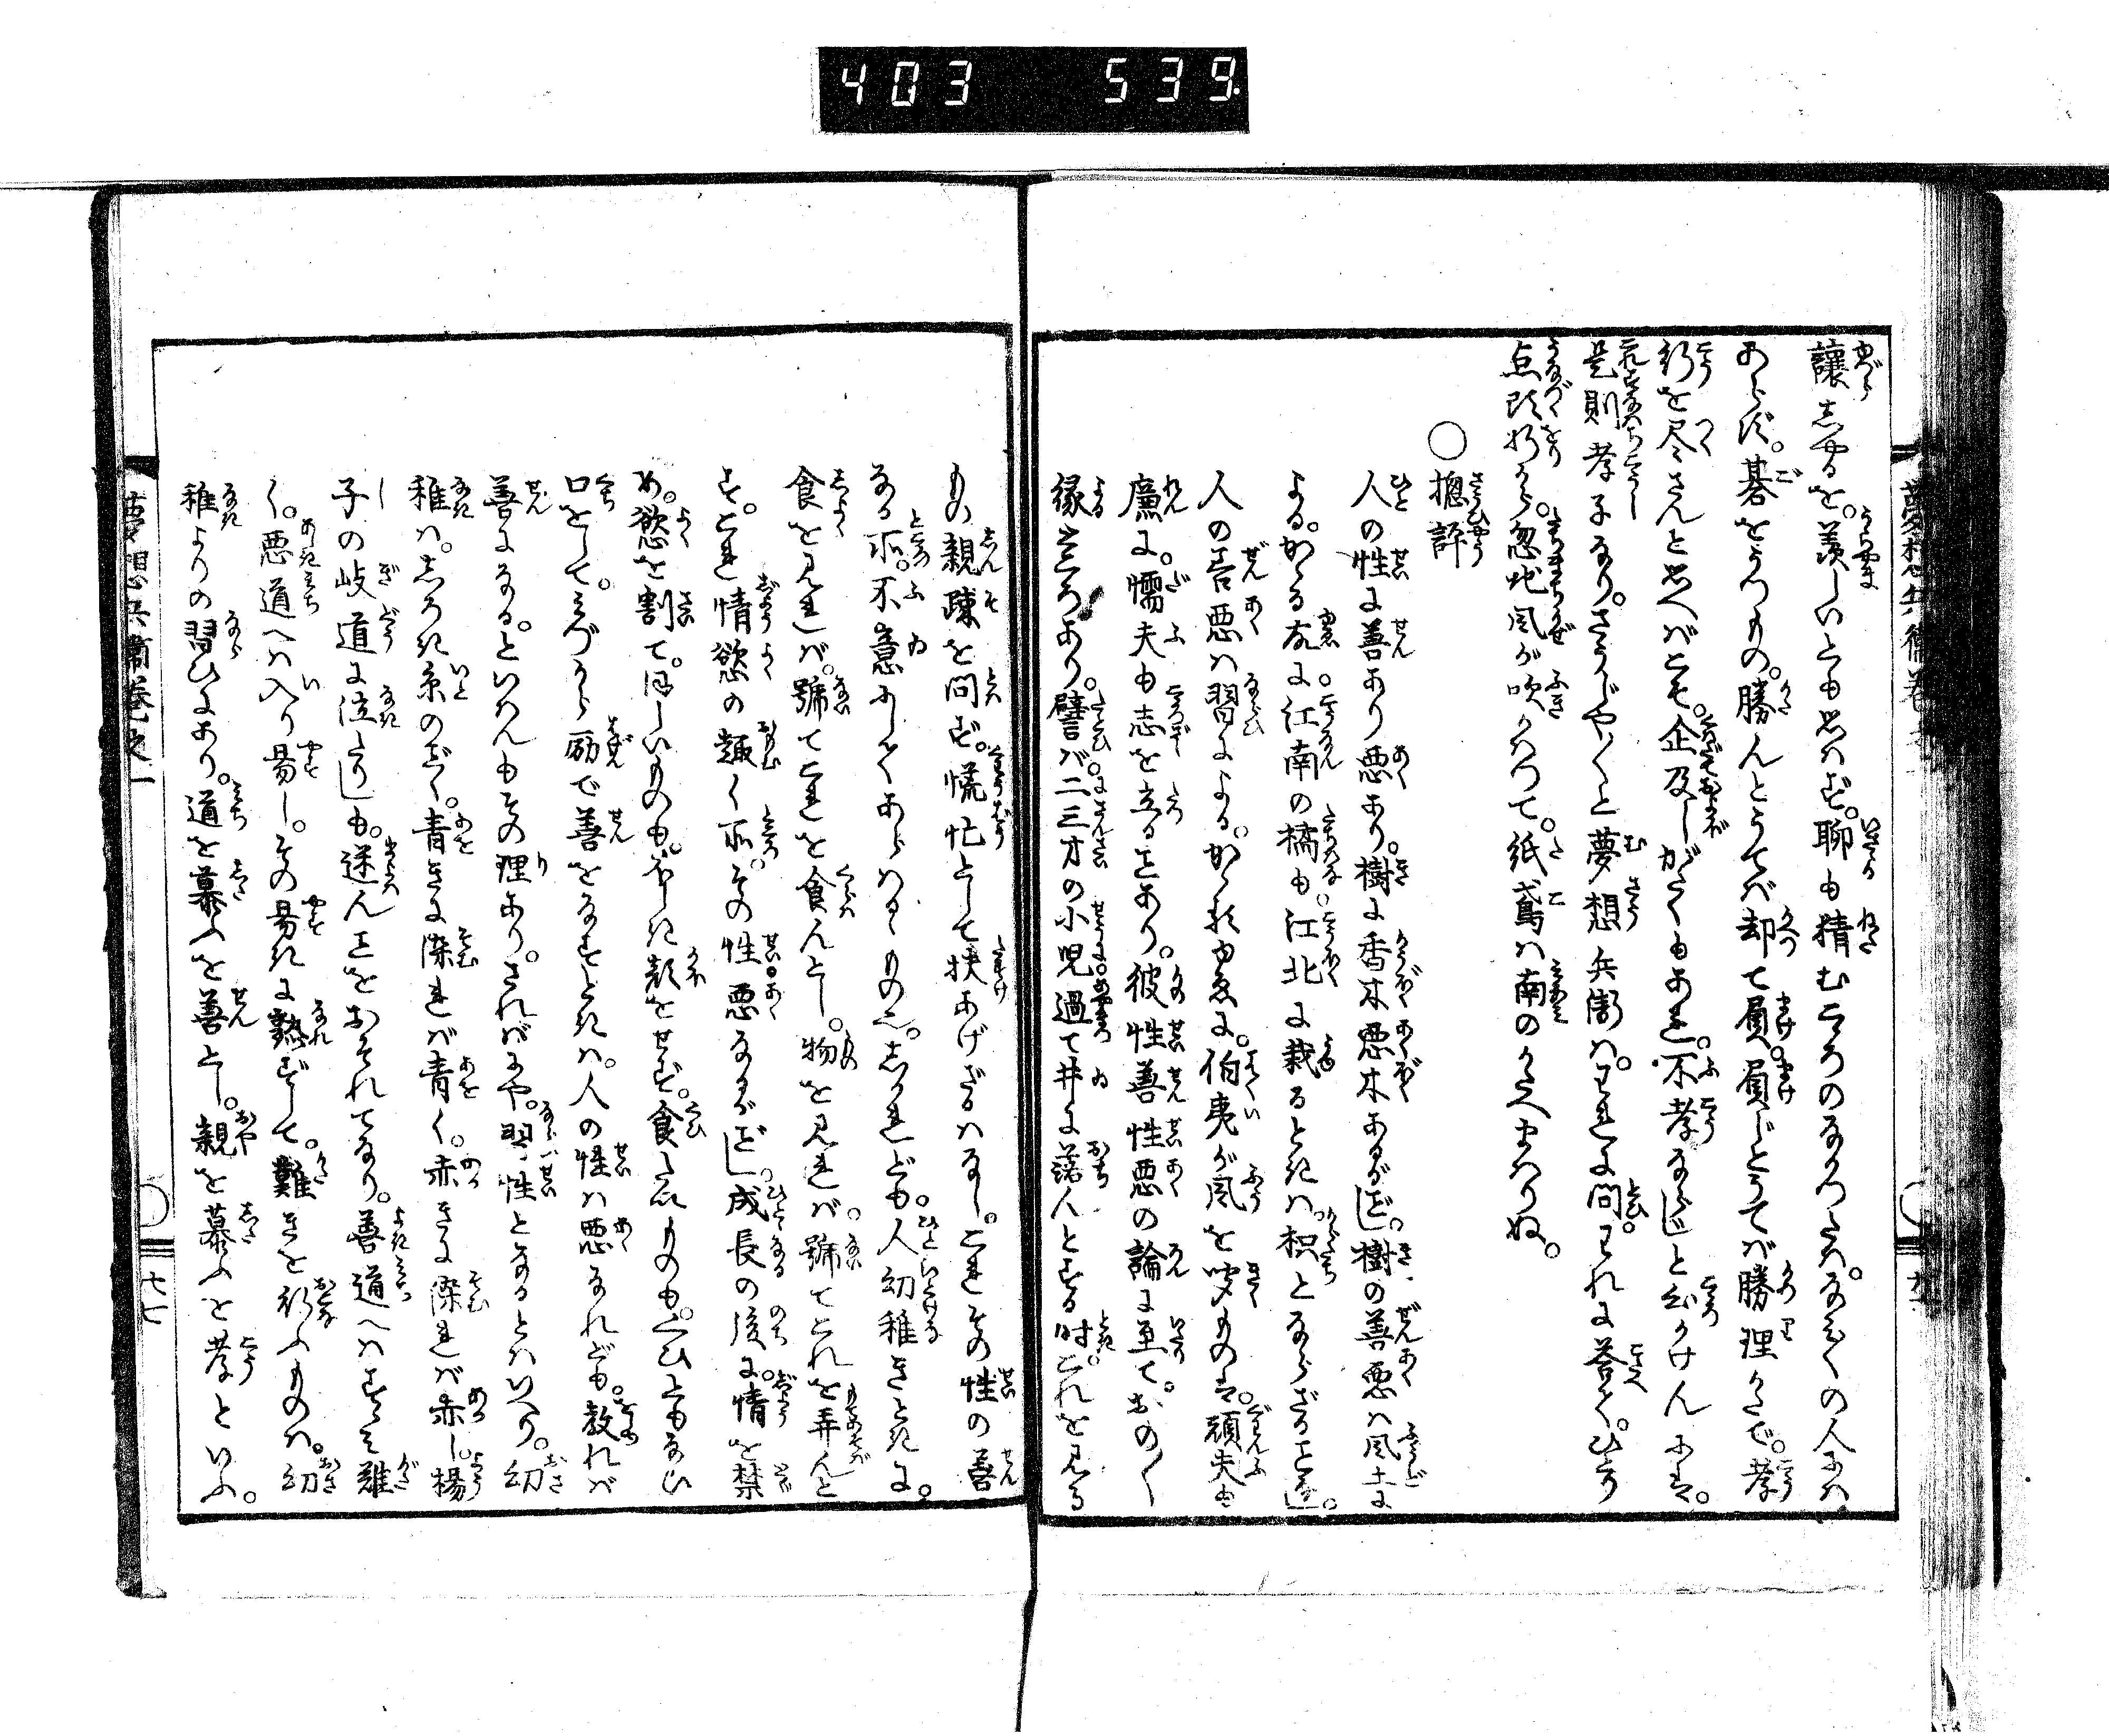 403 539
譲るを。羨しいとも思はず。聊も猜むこゝろのなかつたは。なか〳〵の人には
あらず。碁をうつもの。勝んとうてば却て屓。屓じとうてば勝理かたで。孝
行を尽さんと思へばとて。企及しがたくもあれ。不孝ならじと心がけんには。
是則孝子なり。さうじや〳〵と夢想兵衛は。われに問。われに答て。ひとり
点頭折から。忽地風が吹かはつて。紙鳶は南のかたへまはりぬ。
○摠評
人の性に善あり悪あり。樹に香木悪木あるがごとし。樹の善悪は風土に
よる。かゝる故に。江南の橘も。江北に栽るときは。枳とならざることなし。
人の善悪は習による。かゝるゆゑに。伯夷が風を聞ものは。頑夫も
廉に。懦夫も志を立ることあり。彼性善性悪の論に至て。おの〳〵
縁ところあり。譬ば。二三才の小児過て井に落んとする時。これを見る
もの親疎を問ず。慌忙として扶あげざるはなし。これその性の善
なる所。不意にしてあらはるゝもの也。しかれども。人幼稚きときに。
食を見れば。號てこれを食んとし。物を見れば。號てこれを弄んと
す。これ情慾の趣く所。その性悪なるがごとし。成長の後に。情を禁
め。慾を割て。ほしいものも。ほしき顔をせず。食たいものも。くひともない
口をして。みづから励で善をなすときは。人の性は悪なれども。教れば
善になる。といはんもその理あり。さればにや。習、性となるとはいへり。幼
稚は。しろき糸のごとく。青きに染れば青く。赤きに染れば赤し。楊
子の岐道に泣たりしも。迷んことをおそれてなり。善道へはすゝみ難
く。悪道へは入り易し。その易きに熟ずして。難きを行ふものは。幼
稚よりの習ひにあり。道を慕ふを善とし。親を慕ふを孝といふ。
夢想兵衛巻之一
十七